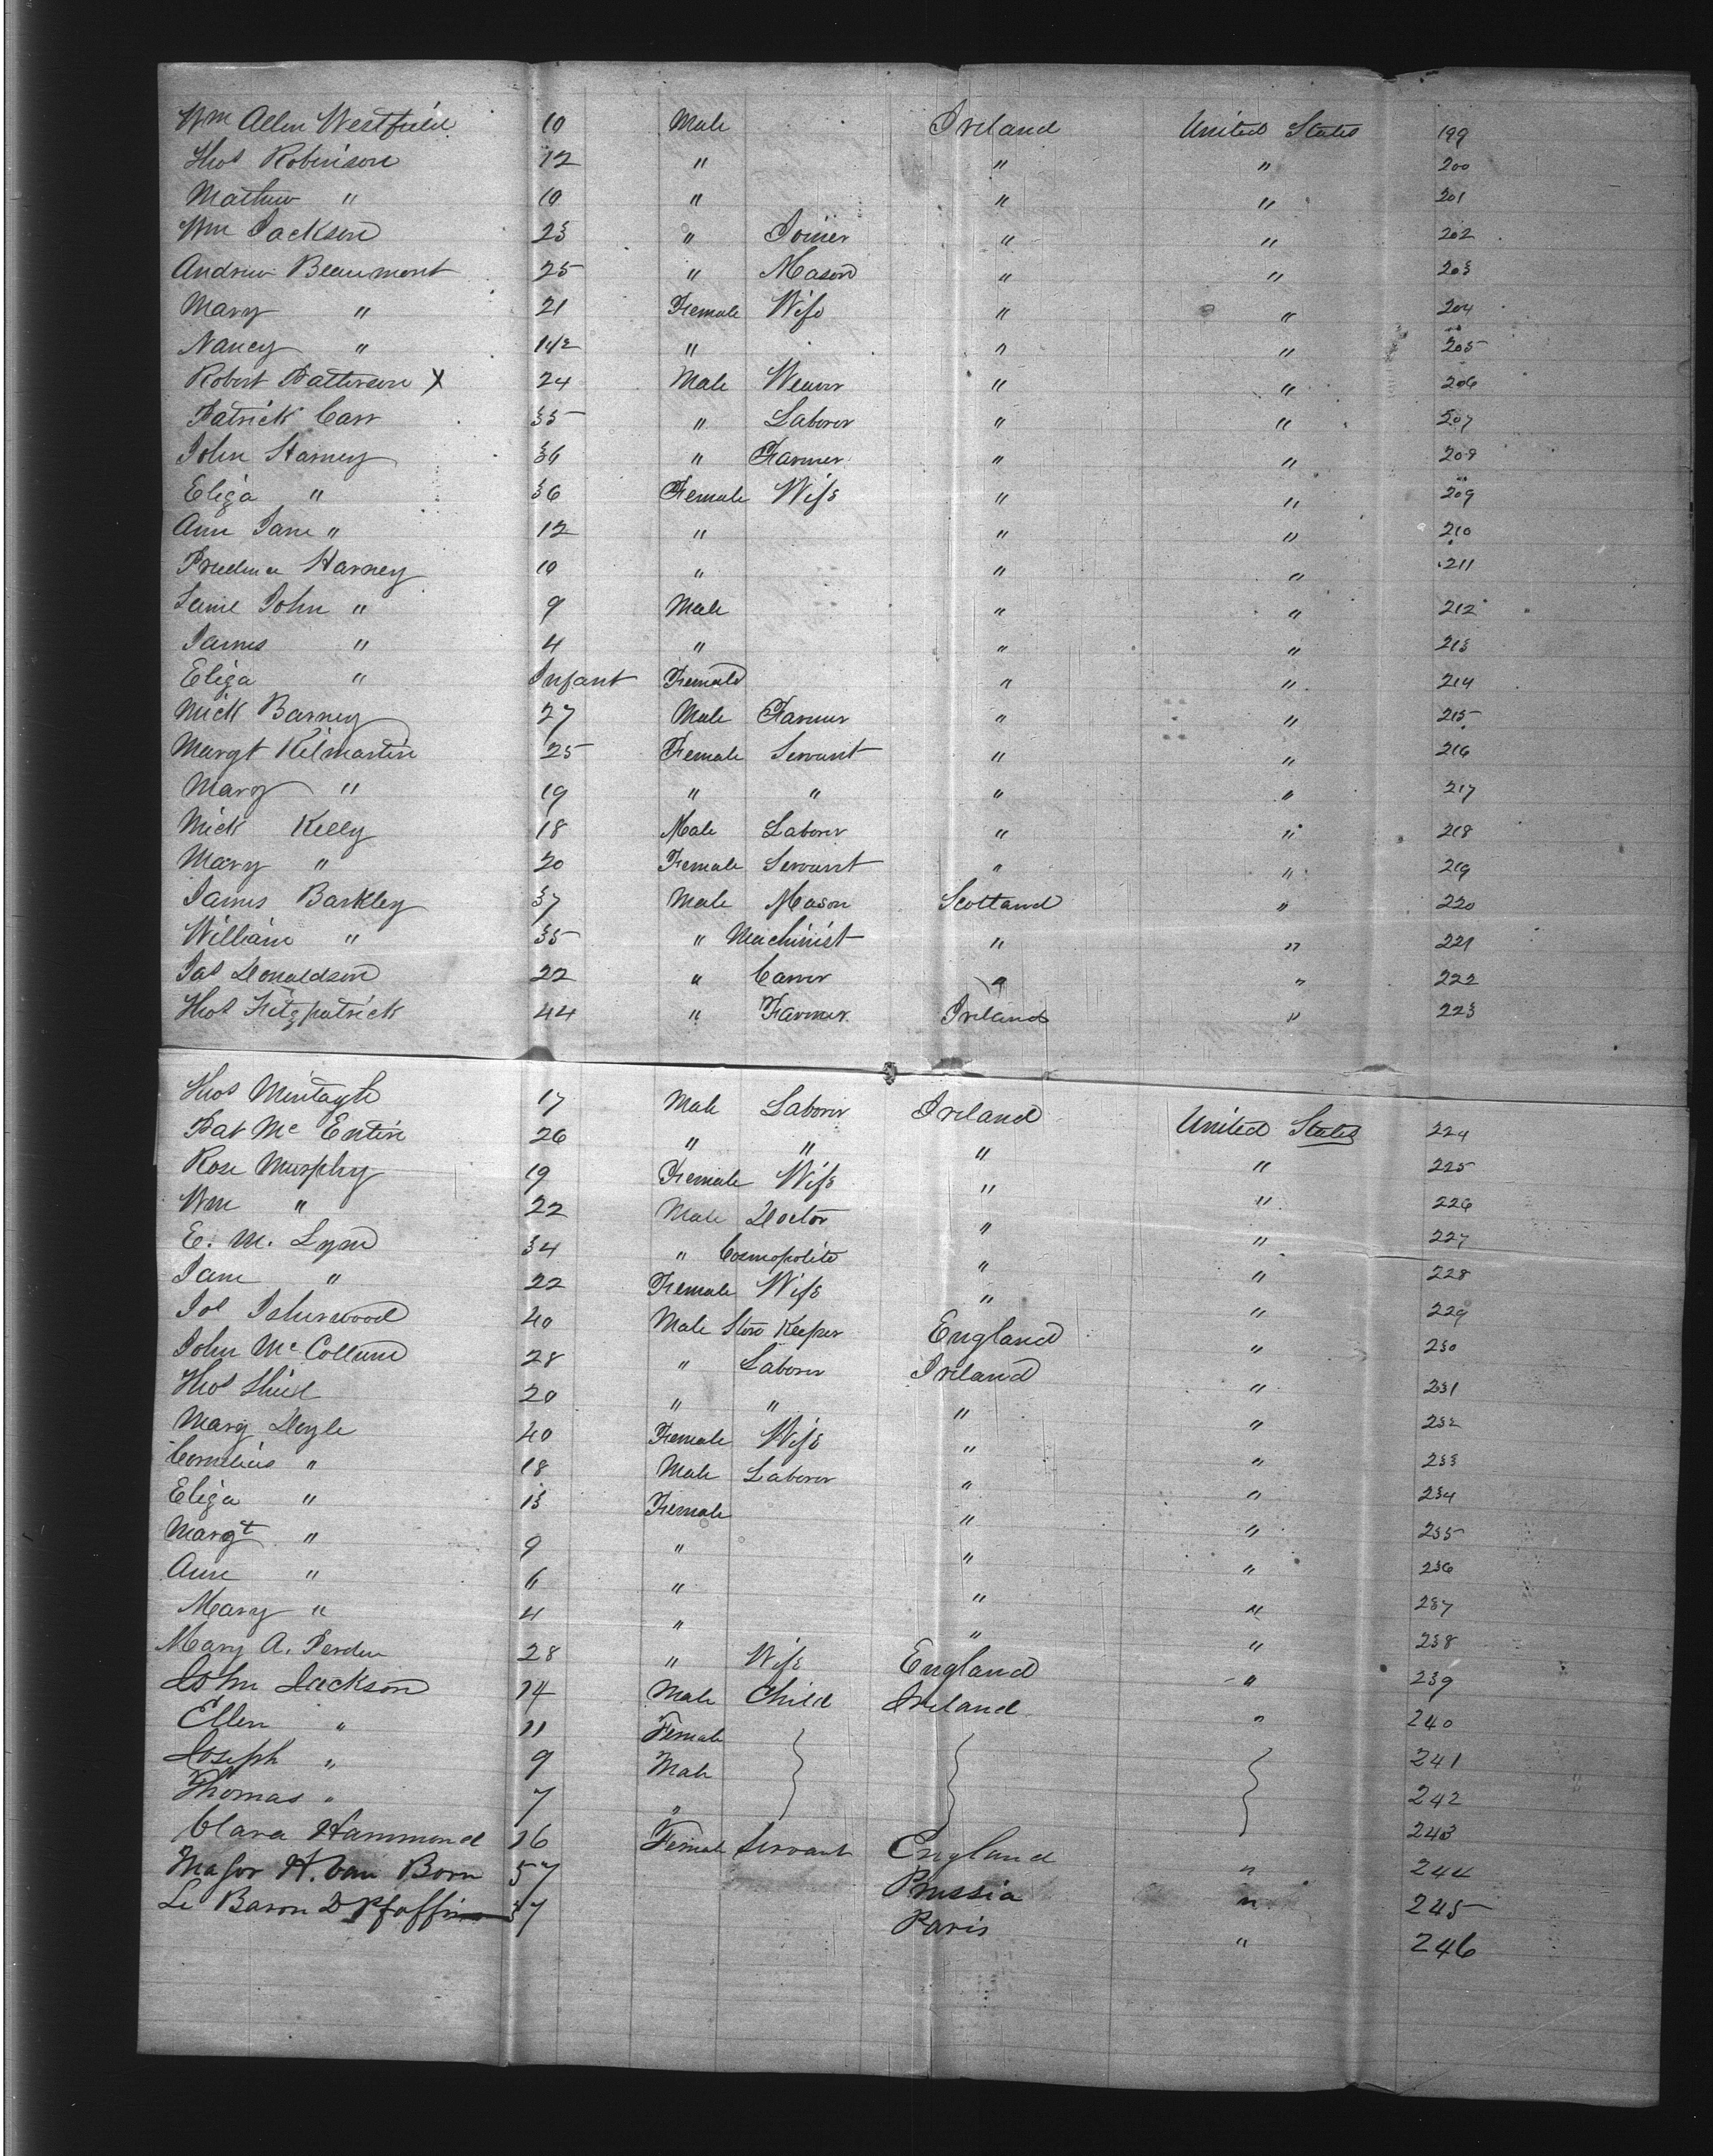 Wm Allen Westfield 10 Male Ireland United States 199
Thos Robinson 12 " " " 200
Mathew " 10 " " " 201
Wm Jackson 23 " Joiner " " 202
Andrew Beaumont 25 " Mason " " 203
Mary " 21 Female Wife " " 204
Nancy " 1 1/2 " " " 205
Robert Patterson X 24 Male Weaver " " 206
Patrick Carr 35 " Laborer " " 207
John Harney 36 " Farmer " " 208
Eliza " 36 Female Wife " " 209
Ann Jane " 12 " " " 210
Prudence Harney 10 " " " 211
John " 9 Male " " 212
James " 4 " " " 213
Eliza " Infant Female " " 214
Mick Barney 27 Male Farmer " " 215
Margt Kilmartin 25 Female Servant " " 216
Mary " 19 " " " " 217
Mick Kelly 18 Male Laborer " " 218
Mary " 20 Female Servant " " 219
James Barkley 37 Male Mason Scotland " 220
William " 35 " Machinist " " 221
Jas Donaldson 22 " Carver " " 222
Thos Fitzpatrick 44 " Farmer Ireland " 223
Thos 17 Male Laborer Ireland United States 224
Pat Mc Entire 26 " " " " 225
Rose Murphy 19 Female Wife " " 226
Wm " 22 Male Doctor " " 227
E. M. Lynd 34 " Cosmopolite " " 228
Jane " 22 Female Wife " " 229
Jos Isherwood 40 Male Store Keeper England " 230
John Mc Collum 28 " Laborer Ireland " 231
Thos Shiel 20 " " " " 232
Mary Doyle 40 Female Wife " " 233
Cornelius " 18 Male Laborer " " 234
Eliza " 13 Female " " 235
Margt " 9 " " " 236
Ann " 6 " " " 237
Mary " 4 " " " 238
Mary A. Perdue 28 " Wife England " 239
John Jackson 14 Male Child Ireland " 240
Ellen " 11 Female 241
Joseph " 9 Male 242
Thomas " 7 " 243
Clara Hammond 16 Female Servant England " 244
Major H. van Born 57 Prussia " 245
Le Baron D 37 Paris " 246